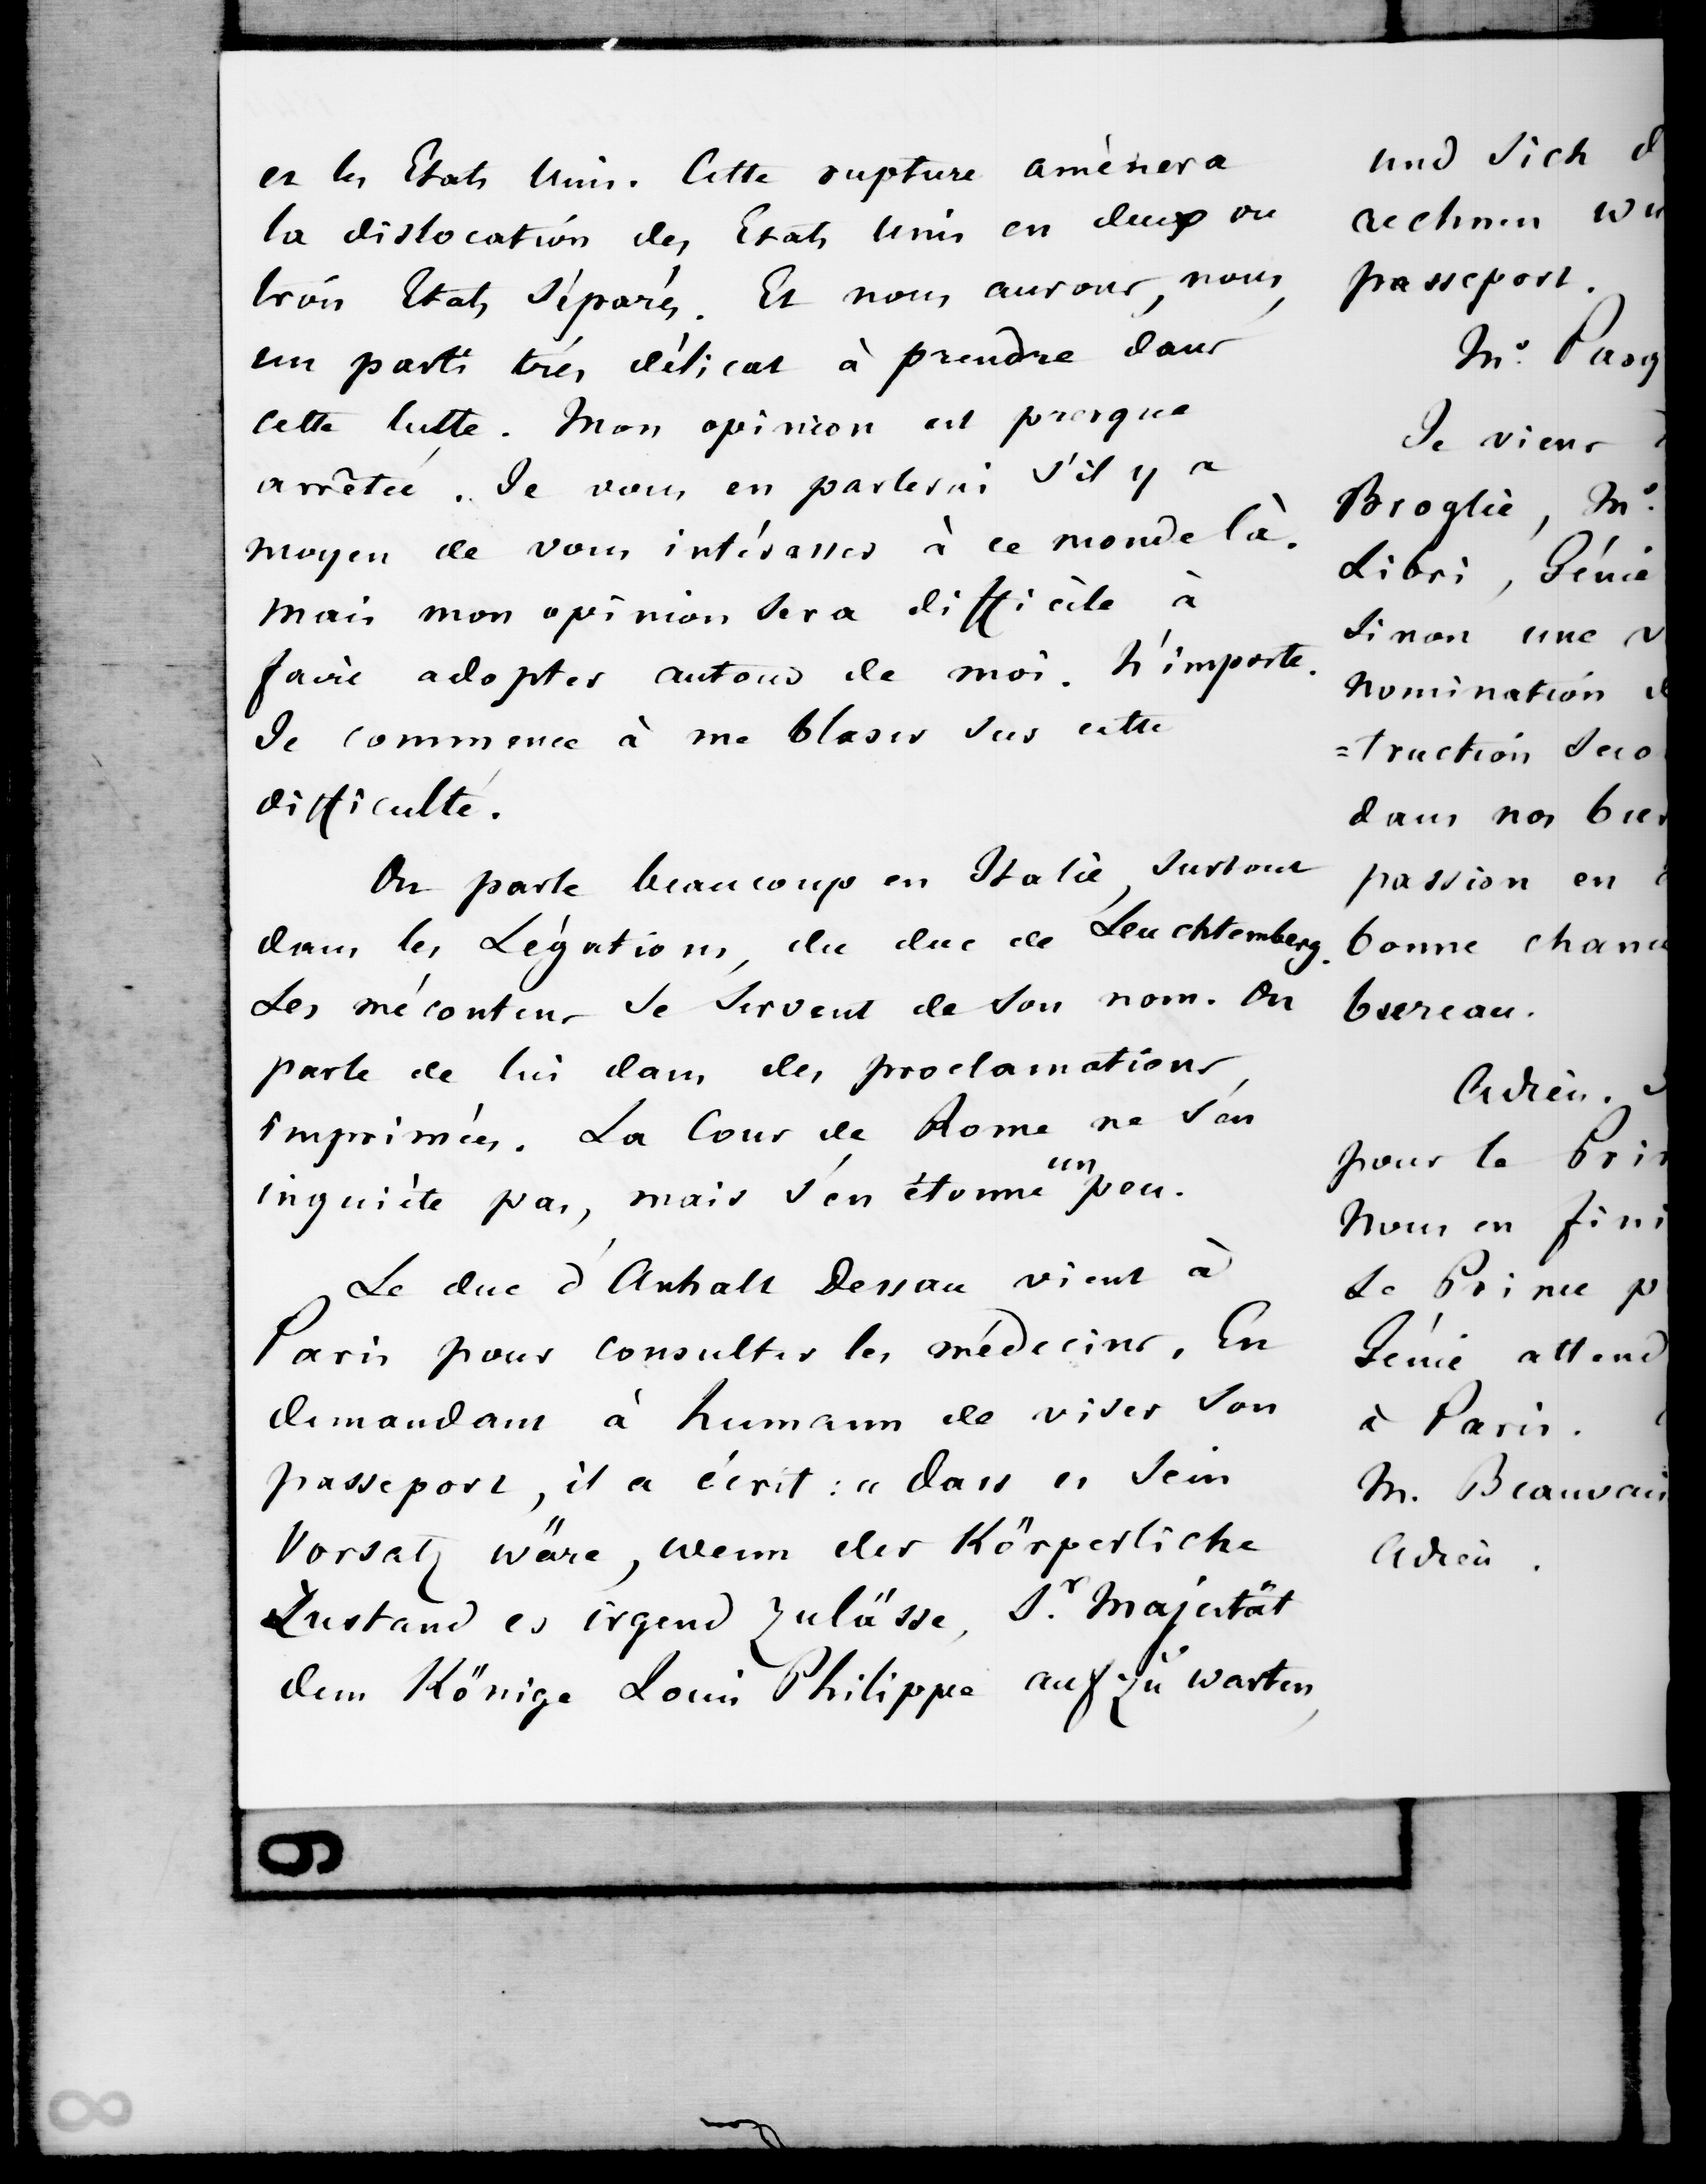 et les Etats Unis. Cette rupture amènera
la dislocation des Etats Unis en deux ou
trois Etats séparés. Et nous aurons, nous,
un parti très délicat à prendre dans
cette lutte. Mon opinion est presque
arrêtée. Je vous en parlerai s'il y a
moyen de vous intéresser à ce monde là.
Mais mon opinion sera difficile à
faire adopter autour de moi. N'importe.
Je commence à me blaser sur cette
difficulté.
On parle beaucoup en Italie, surtout
dans les Légations, du duc de Leuchtemberg.
Les mécontens se servent de son nom. On
parle de lui dans des proclamations
imprimées. La Cour de Rome ne s'en
inquiète pas, mais s'en étonne un peu.
Le duc d'Anhalt Dessau vient à
Paris pour consulter les médecins. En
demandant à humann de viser son
passeport, il a écrit : " dass es sein
Vorsatz wäre, wenn der Körperliche
Zustand es irgend zulässe, Sr. Majestät
dem Könige Louis Philippe aufzuwarten,
und sich d
rechnen wü
passeport.
Mr. Pasq
Je viens
Broglie, Mr.
Libri, Génie
Sinon une v
nomination d
=truction seco
dans nos bur
passion en
bonne chanc
bureau.
Adieu. J
pour le Prin
Nous en fini
Le Prince p
Génie attend
à Paris.
M. Beauvais
Adieu.
9
8